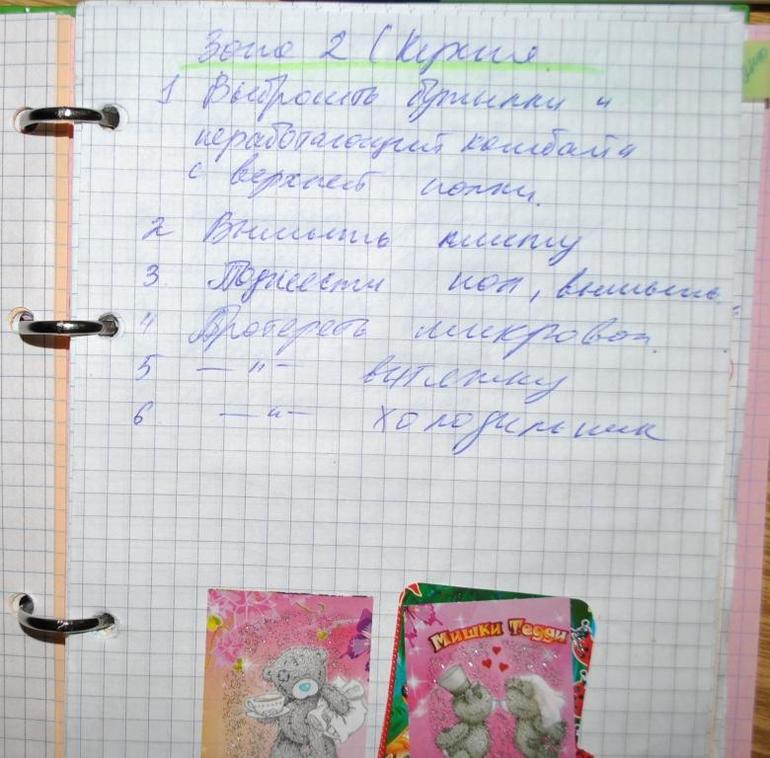 Зона 2 (Кухня
1 Выбросить бутылки и
неработающий комбайн
с верхней полки.
2 Вымыть плиту
3 Подмести пол, вымыть.
4 Протереть микровол.
5 — " — вытяжку
6 — " — холодильник
Мишки Тедди